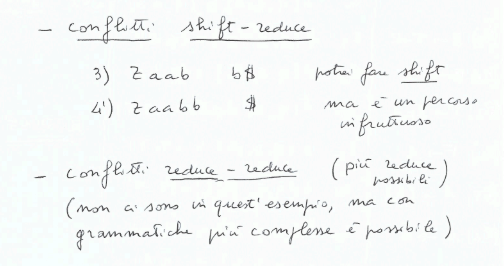 - conflitti shift-reduce
3) Zaab b$ potrei fare shift
4') Zaabb $ ma è un percorso infruttuoso
- conflitti reduce-reduce (più reduce possibili)
(non ci sono in quest'esempio, ma con
grammatiche più complesse è possibile)